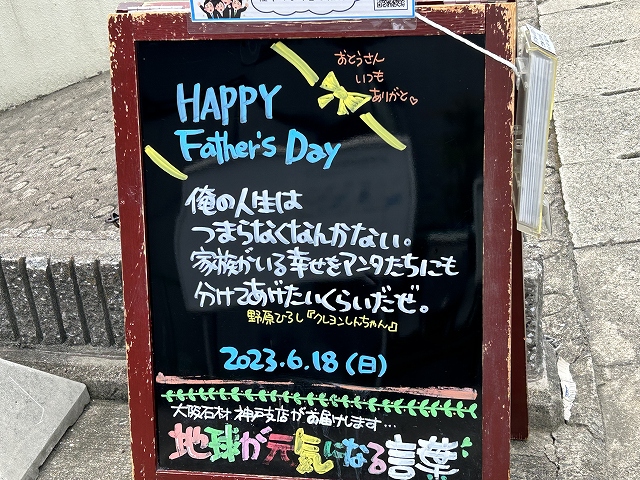 おとうさん
いつも
ありがと♡
HAPPY
Father's Day
俺の人生は
つまらなくなんかない。
家族がいる幸せをアンタたちにも
分けてあげたいくらいだぜ。
野原ひろし『クレヨンしんちゃん』
2023.6.18(日)
大阪石材 神戸支店がお届けします…
地球が元気になる言葉